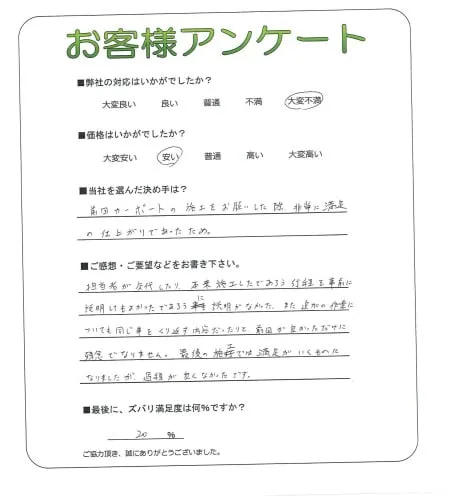 お客様アンケート
■弊社の対応はいかがでしたか？
大変良い 良い 普通 不満 大変不満
■価格はいかがでしたか？
大変安い 安い 普通 高い 大変高い
■当社を選んだ決め手は？
前回カーポートの施工をお願いした際 非常に満足
の仕上がりであったため。
■ご感想・ご要望などをお書き下さい。
担当者が交代したり、本来施工したであろう行程を事前に
説明けもよかったであろうに説明がなかった。また追加の作業に
ついても同じ事をくり返す内容だったりと、前回が良かっただけに
残念でなりません。最後の施工では満足がいくものに
なりましたが、過程が良くなかったです。
■最後に、ズバリ満足度は何％ですか？
20 ％
ご協力頂き、誠にありがとうございました。